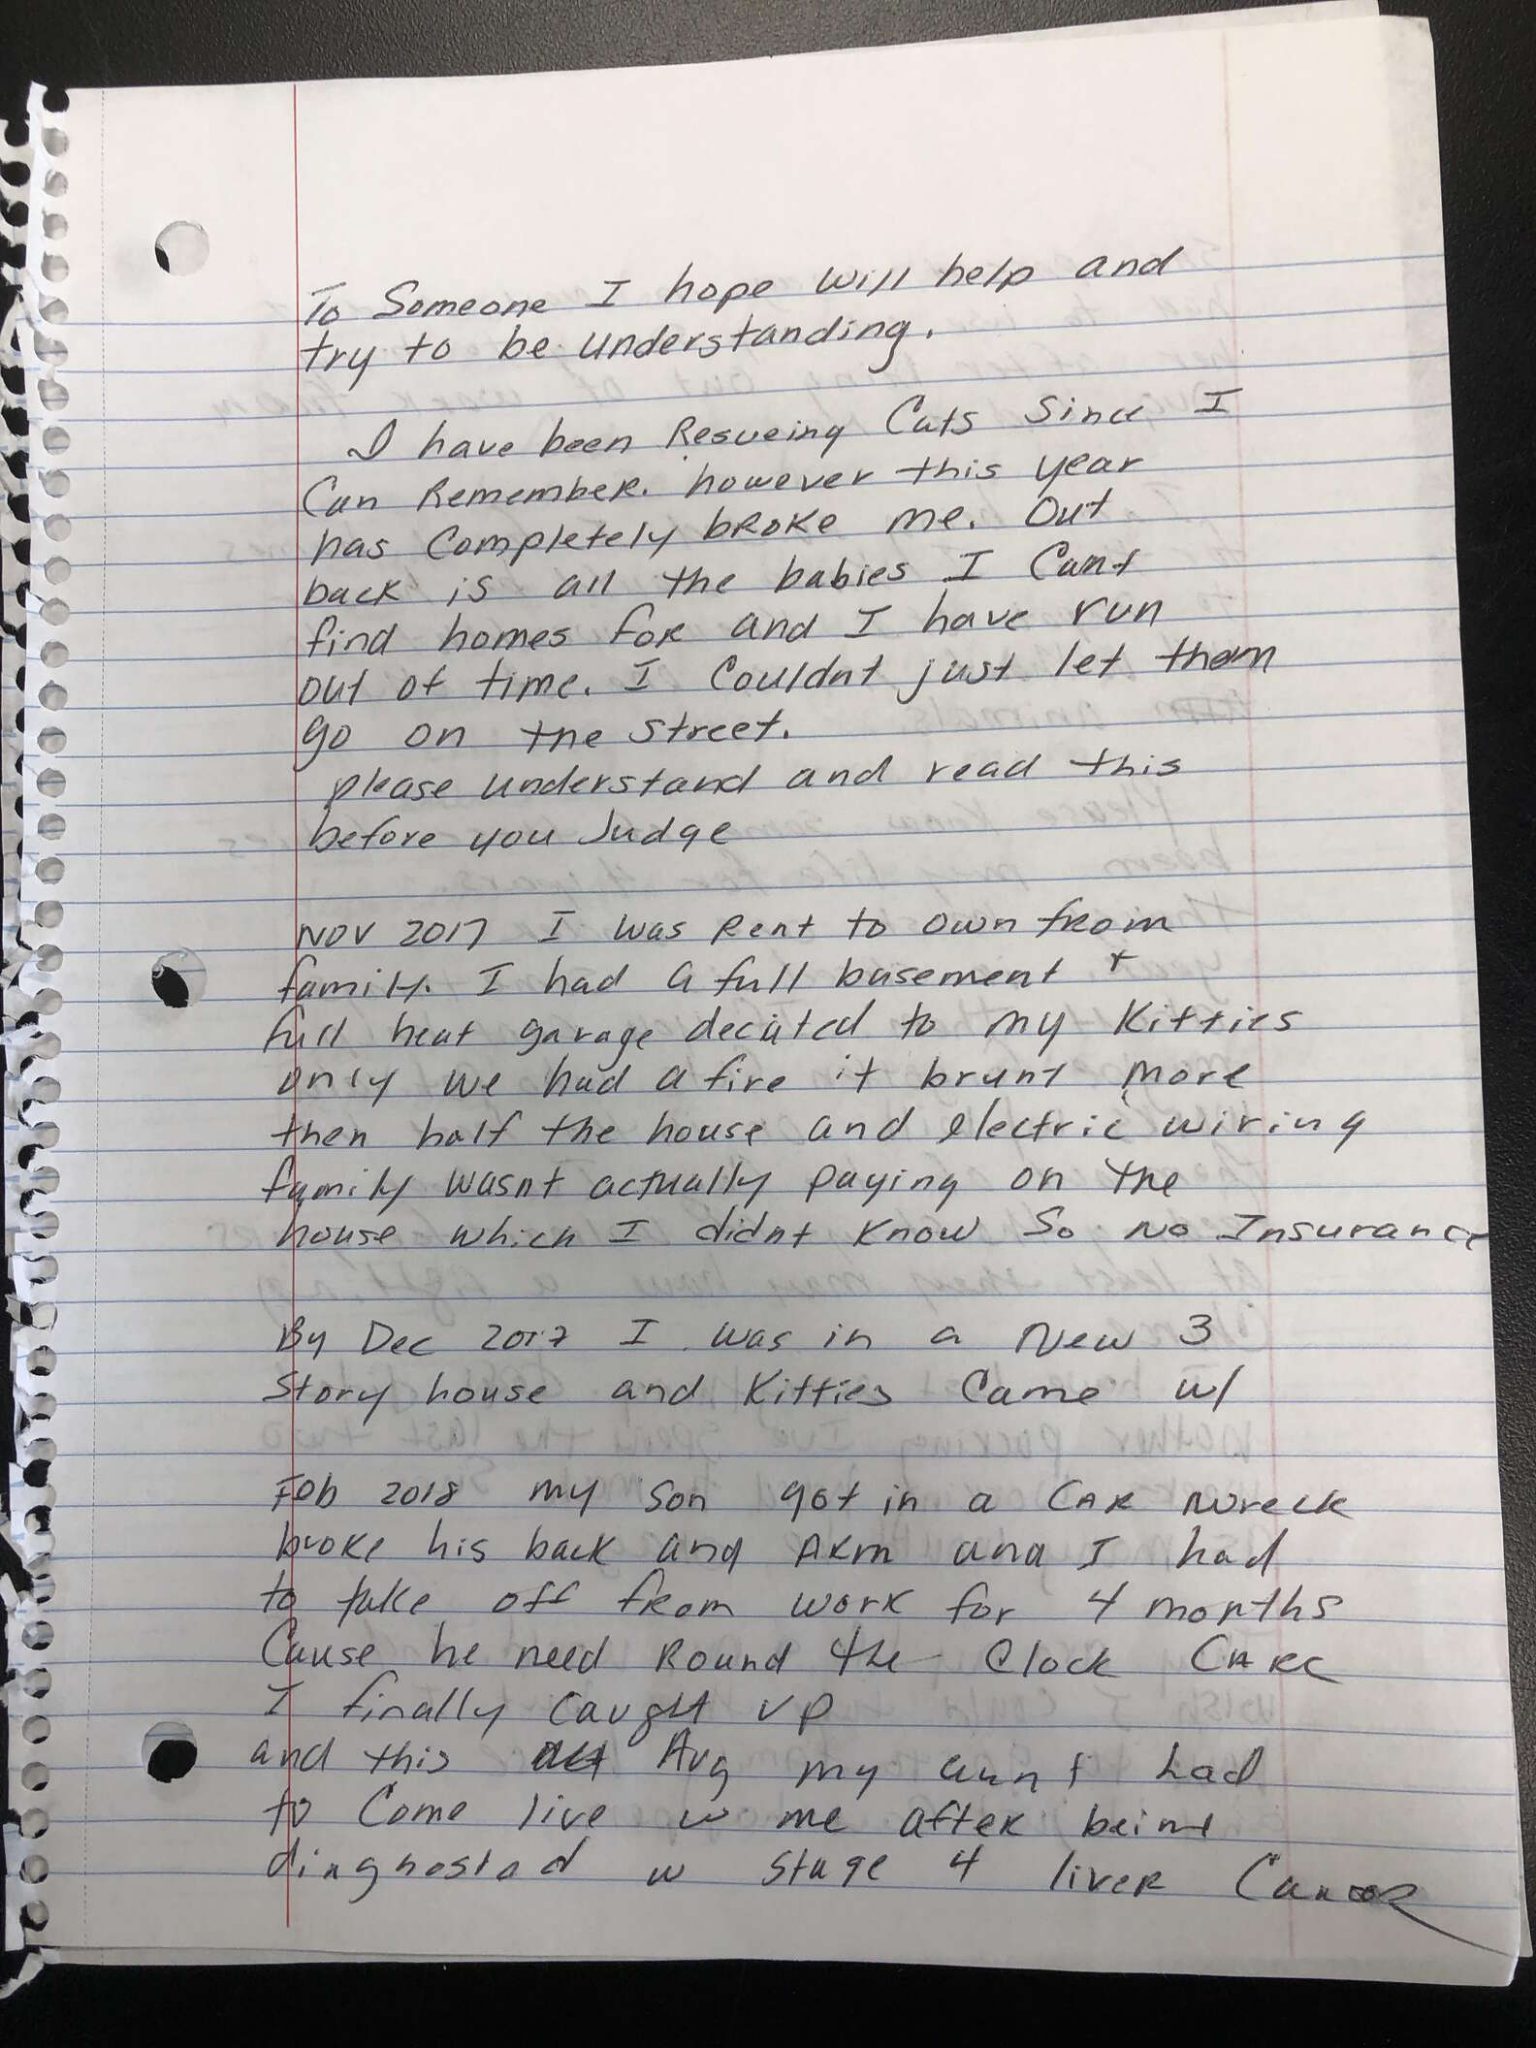 To Someone I hope will help and
try to be understanding.
I have been Resueing Cats Since I
Can Remember. however this year
has Completely broke me. Out
back is all the babies I Cant
find homes for and I have run
out of time. I Couldnt just let them
go on the street.
please understand and read this
before you Judge
NOV 2017 I was Rent to own from
family. I had a full basement +
full heat garage decated to my Kitties
only we had a fire it brunt more
then half the house and electric wiring
family wasnt actually paying on the
house which I didnt know So No Insurance
By Dec 2017 I was in a New 3
Story house and Kitties Came w/
Feb 2018 my son got in a CAR wreck
broke his back and ARm and I had
to take off from work for 4 months
Cause he need Round the Clock CARE
I finally caught up
and this Aug my aunt had
to Come live w me after being
diagnosted w stage 4 liver Cancer